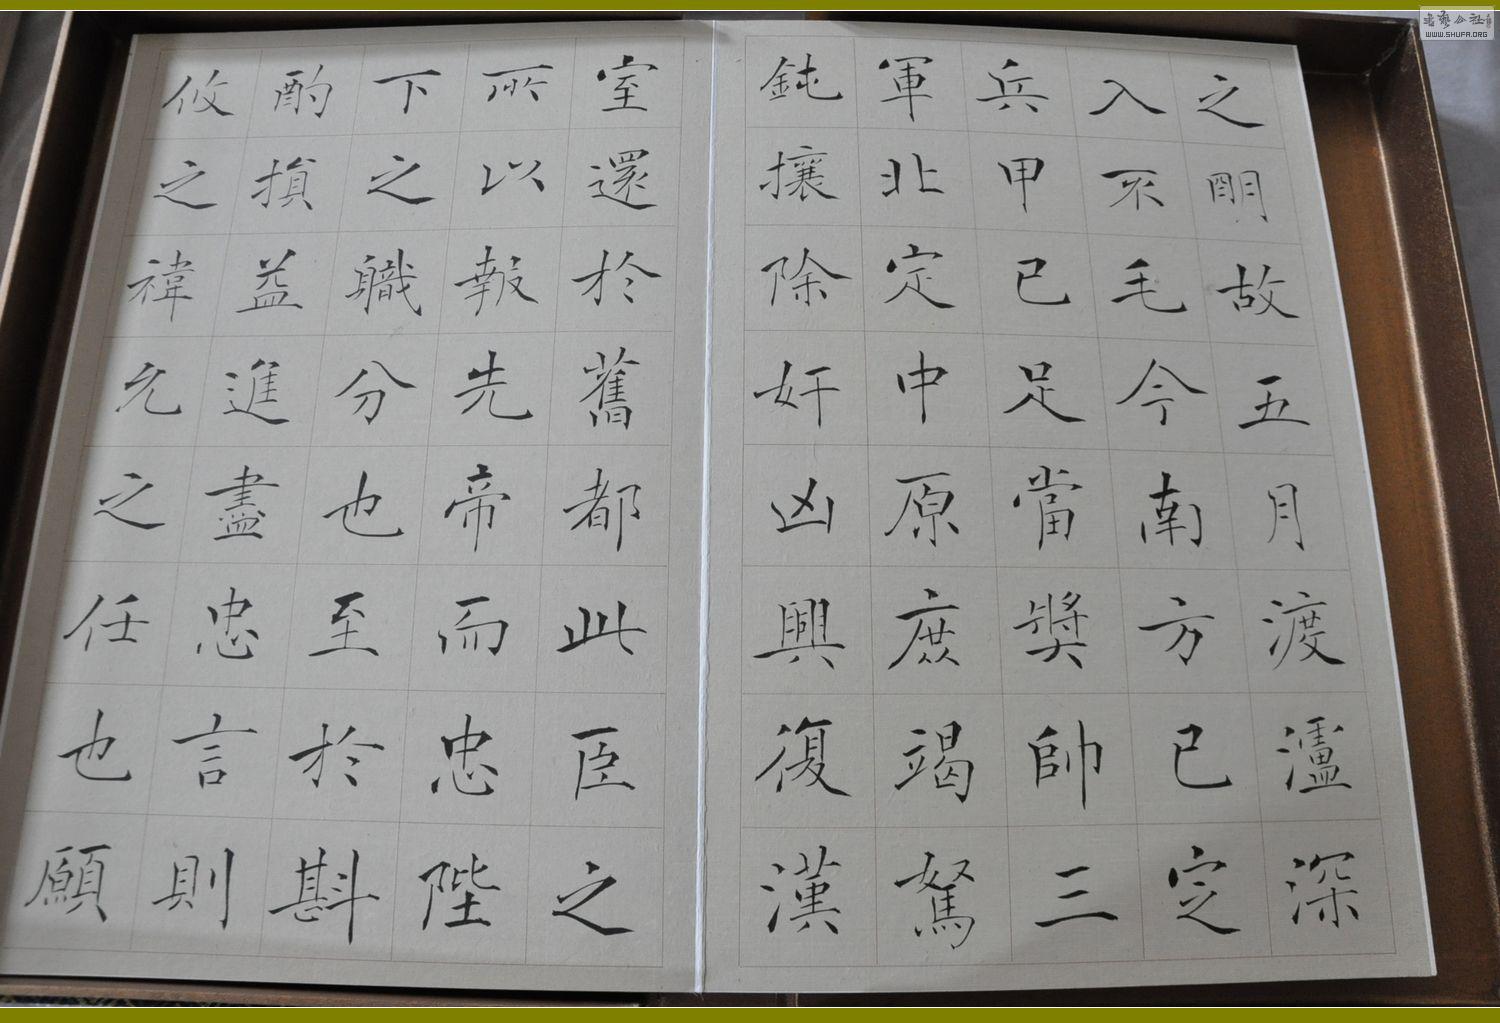 之明故五月渡瀘深
入不毛今南方已定
兵甲已足當奬帥三
軍北定中原庶竭駑
鈍攘除奸凶興復漢
室還於舊都此臣之
所以報先帝而忠陛
下之職分也至於斟
酌損益進盡忠言則
攸之禕允之任也願
书艺公社
WWW.SHUFA.ORG